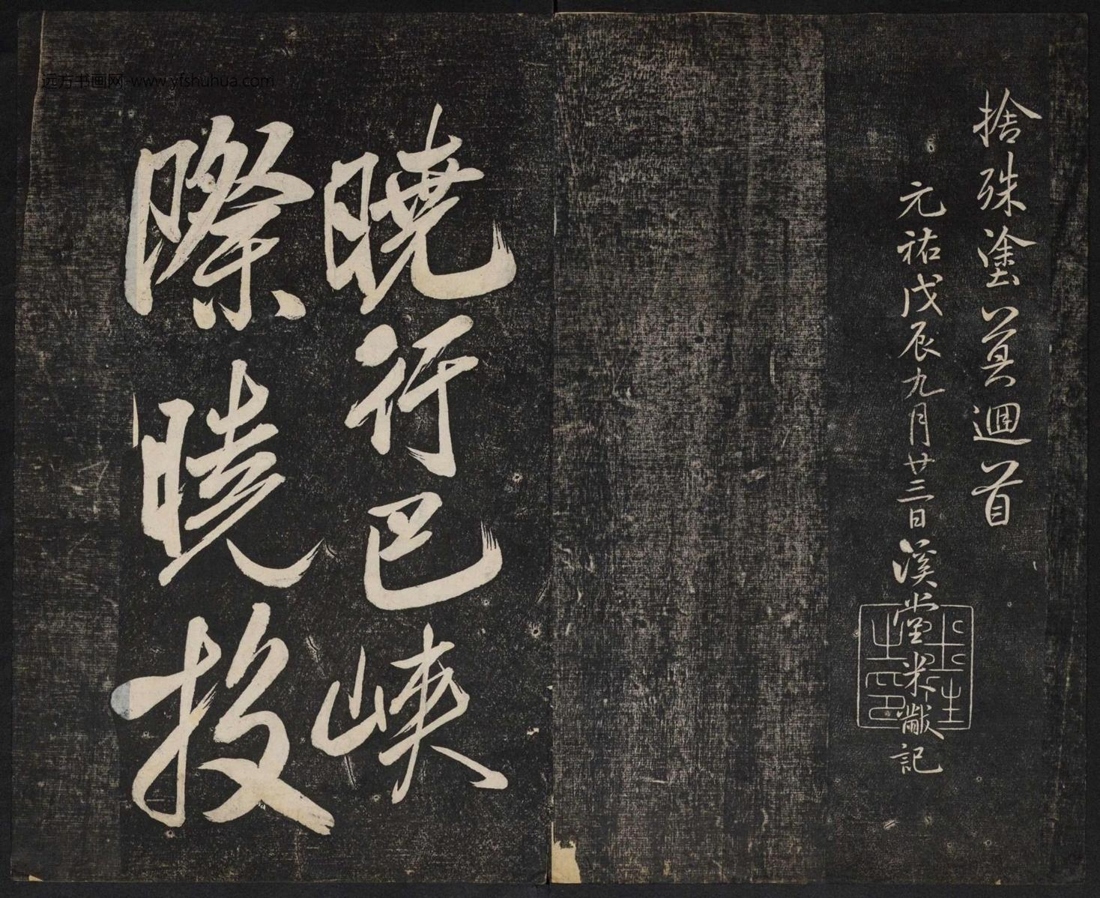 捨殊塗莫迴首
元祐戊辰九月廿三日溪堂米黻記
曉行巴峽
際曉投
远方书画网 www.yfshuhua.com